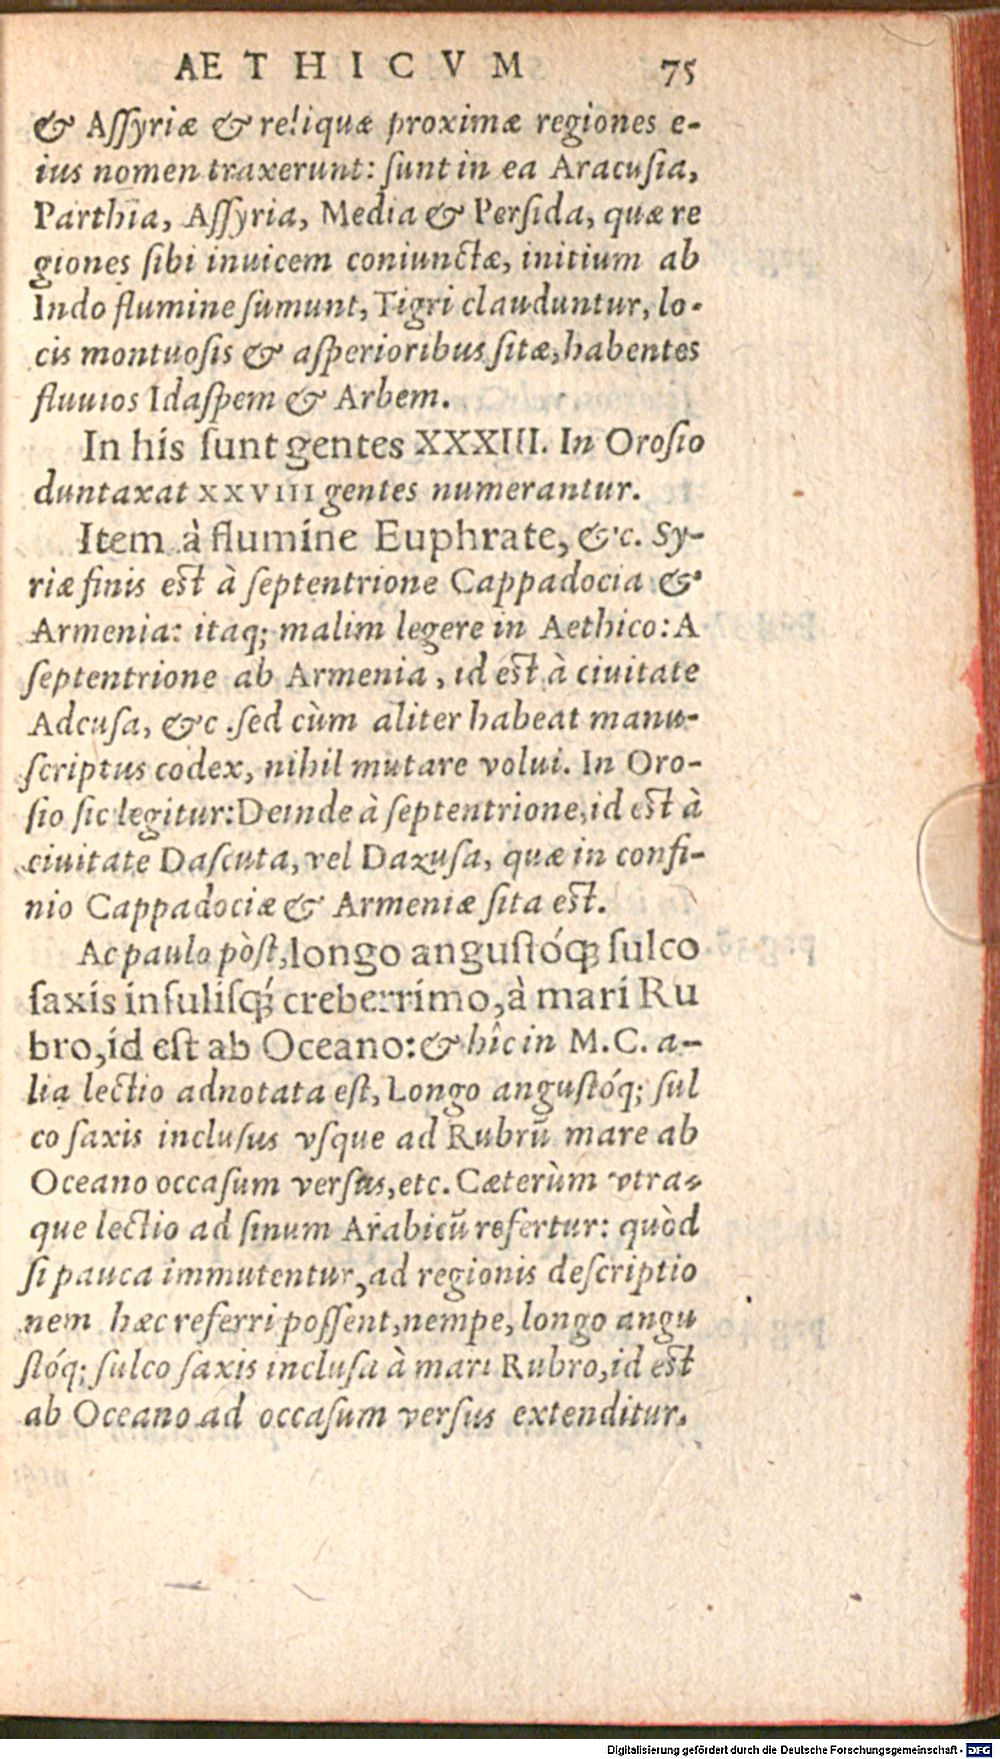 AETHICVM 75
& Aſſyriæ & reliquæ proximæ regiones e-
ius nomen traxerunt: ſunt in ea Aracuſia,
Parthia, Aſſyria, Media & Perſida, quæ re
giones ſibi inuicem coniunctæ, initium ab
Indo flumine ſumunt, Tigri clauduntur, lo-
cis montuoſis & aſperioribus ſitæ, habentes
fluuios Idaſpem & Arbem.
In his ſunt gentes XXXIII. In Oroſio
duntaxat XXVIII gentes numerantur.
Item à flumine Euphrate, &c. Sy-
riæ finis est à ſeptentrione Cappadocia &
Armenia: itaq; malim legere in Aethico: A
ſeptentrione ab Armenia, id est à ciuitate
Adcuſa, &c. ſed cùm aliter habeat manu-
ſcriptus codex, nihil mutare volui. In Oro-
ſio ſic legitur: Deinde à ſeptentrione, id est à
ciuitate Daſcuta, vel Dazuſa, quæ in confi-
nio Cappadociæ & Armeniæ ſita est.
Ac paulo pòſt, longo anguſtóq; ſulco
ſaxis inſuliſq́; creberrimo, à mari Ru
bro, id eſt ab Oceano: & hîc in M.C. a-
lia lectio adnotata eſt, Longo anguſtóq; ſul
co ſaxis incluſus vſque ad Rubrū mare ab
Oceano occaſum verſus, etc. Cæterùm vtra-
que lectio ad ſinum Arabicū refertur: quòd
ſi pauca immutentur, ad regionis deſcriptio
nem hæc referri poſſent, nempe, longo angu
ſtóq; ſulco ſaxis incluſa à mari Rubro, id est
ab Oceano ad occaſum verſus extenditur.
Digitalisierung gefördert durch die Deutsche Forschungsgemeinschaft - DFG